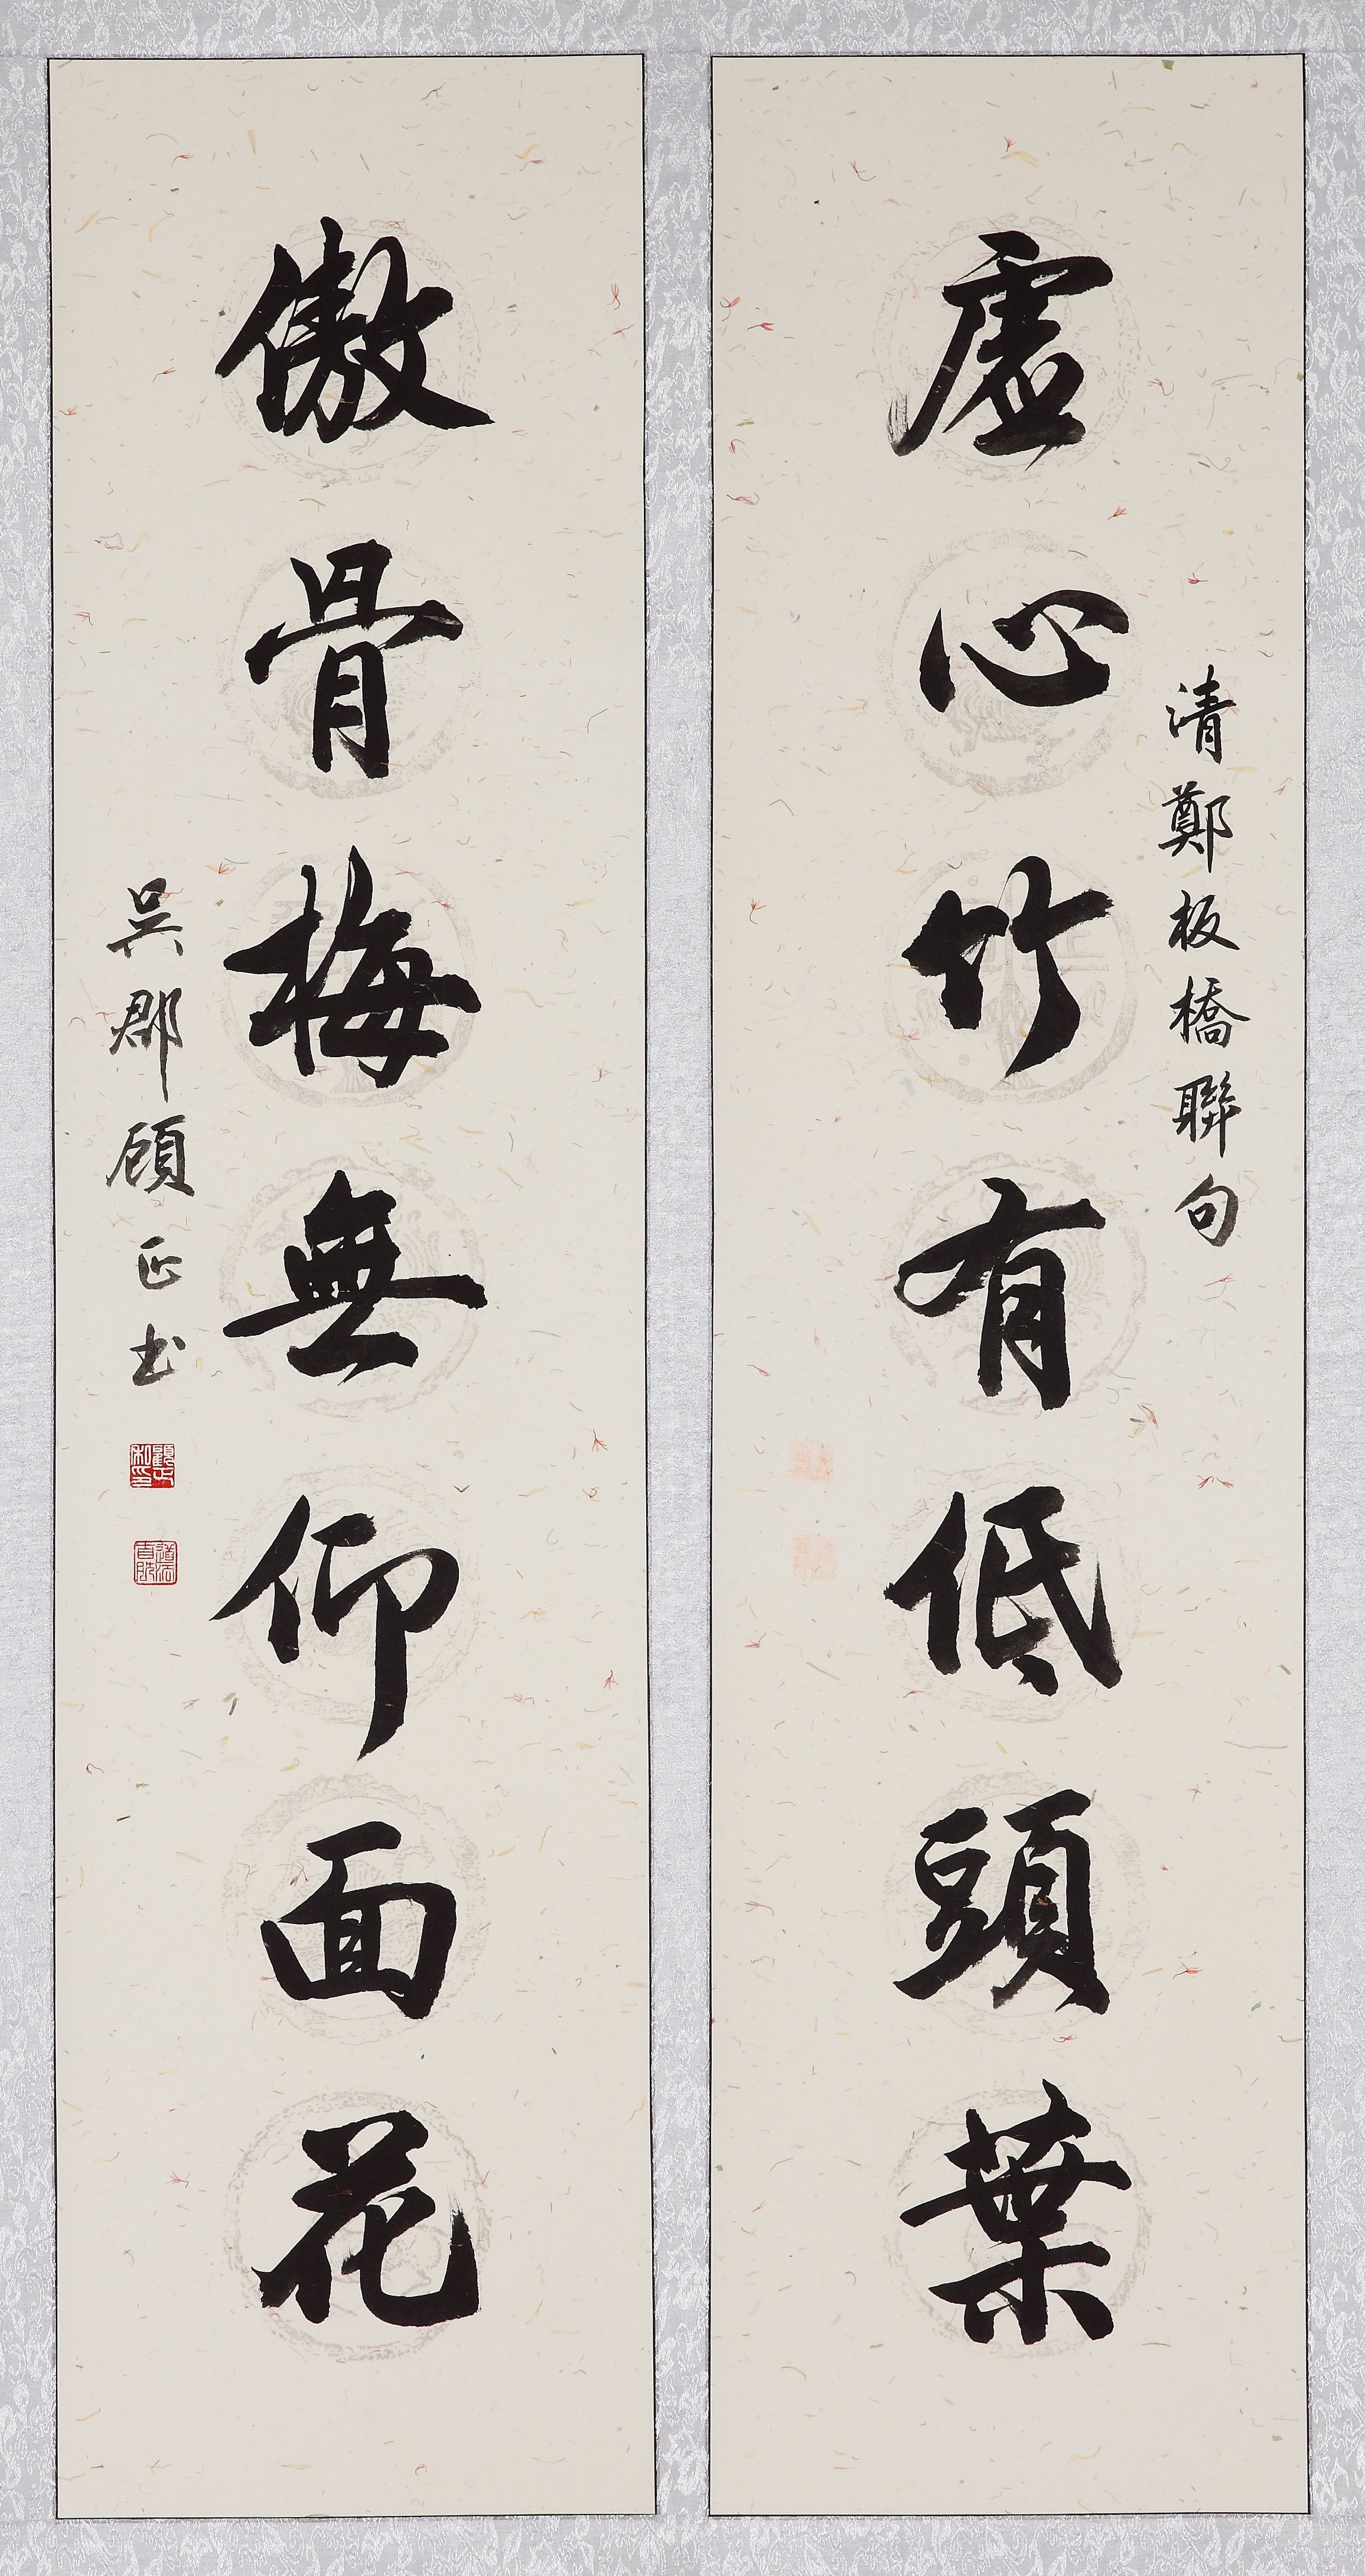 清鄭板橋聯句
虛心竹有低頭葉
傲骨梅無仰面花
吳郡顧正书
顧正私印